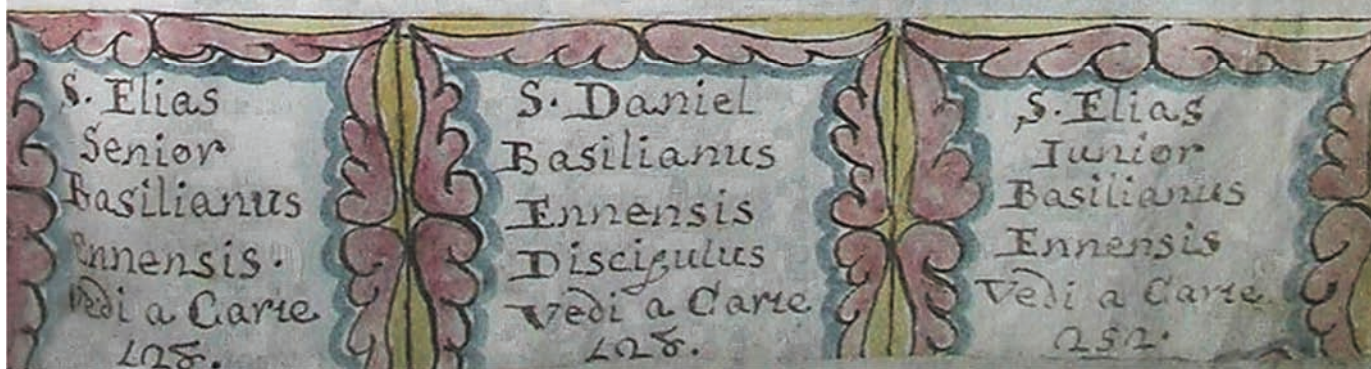 S. Elias
Senior
Basilianus
Ennensis.
Vedi a Carte
128.
S. Daniel
Basilianus
Ennensis
Discipulus
Vedi a Carte
128.
S. Elias
Iunior
Basilianus
Ennensis
Vedi a Carte
252.